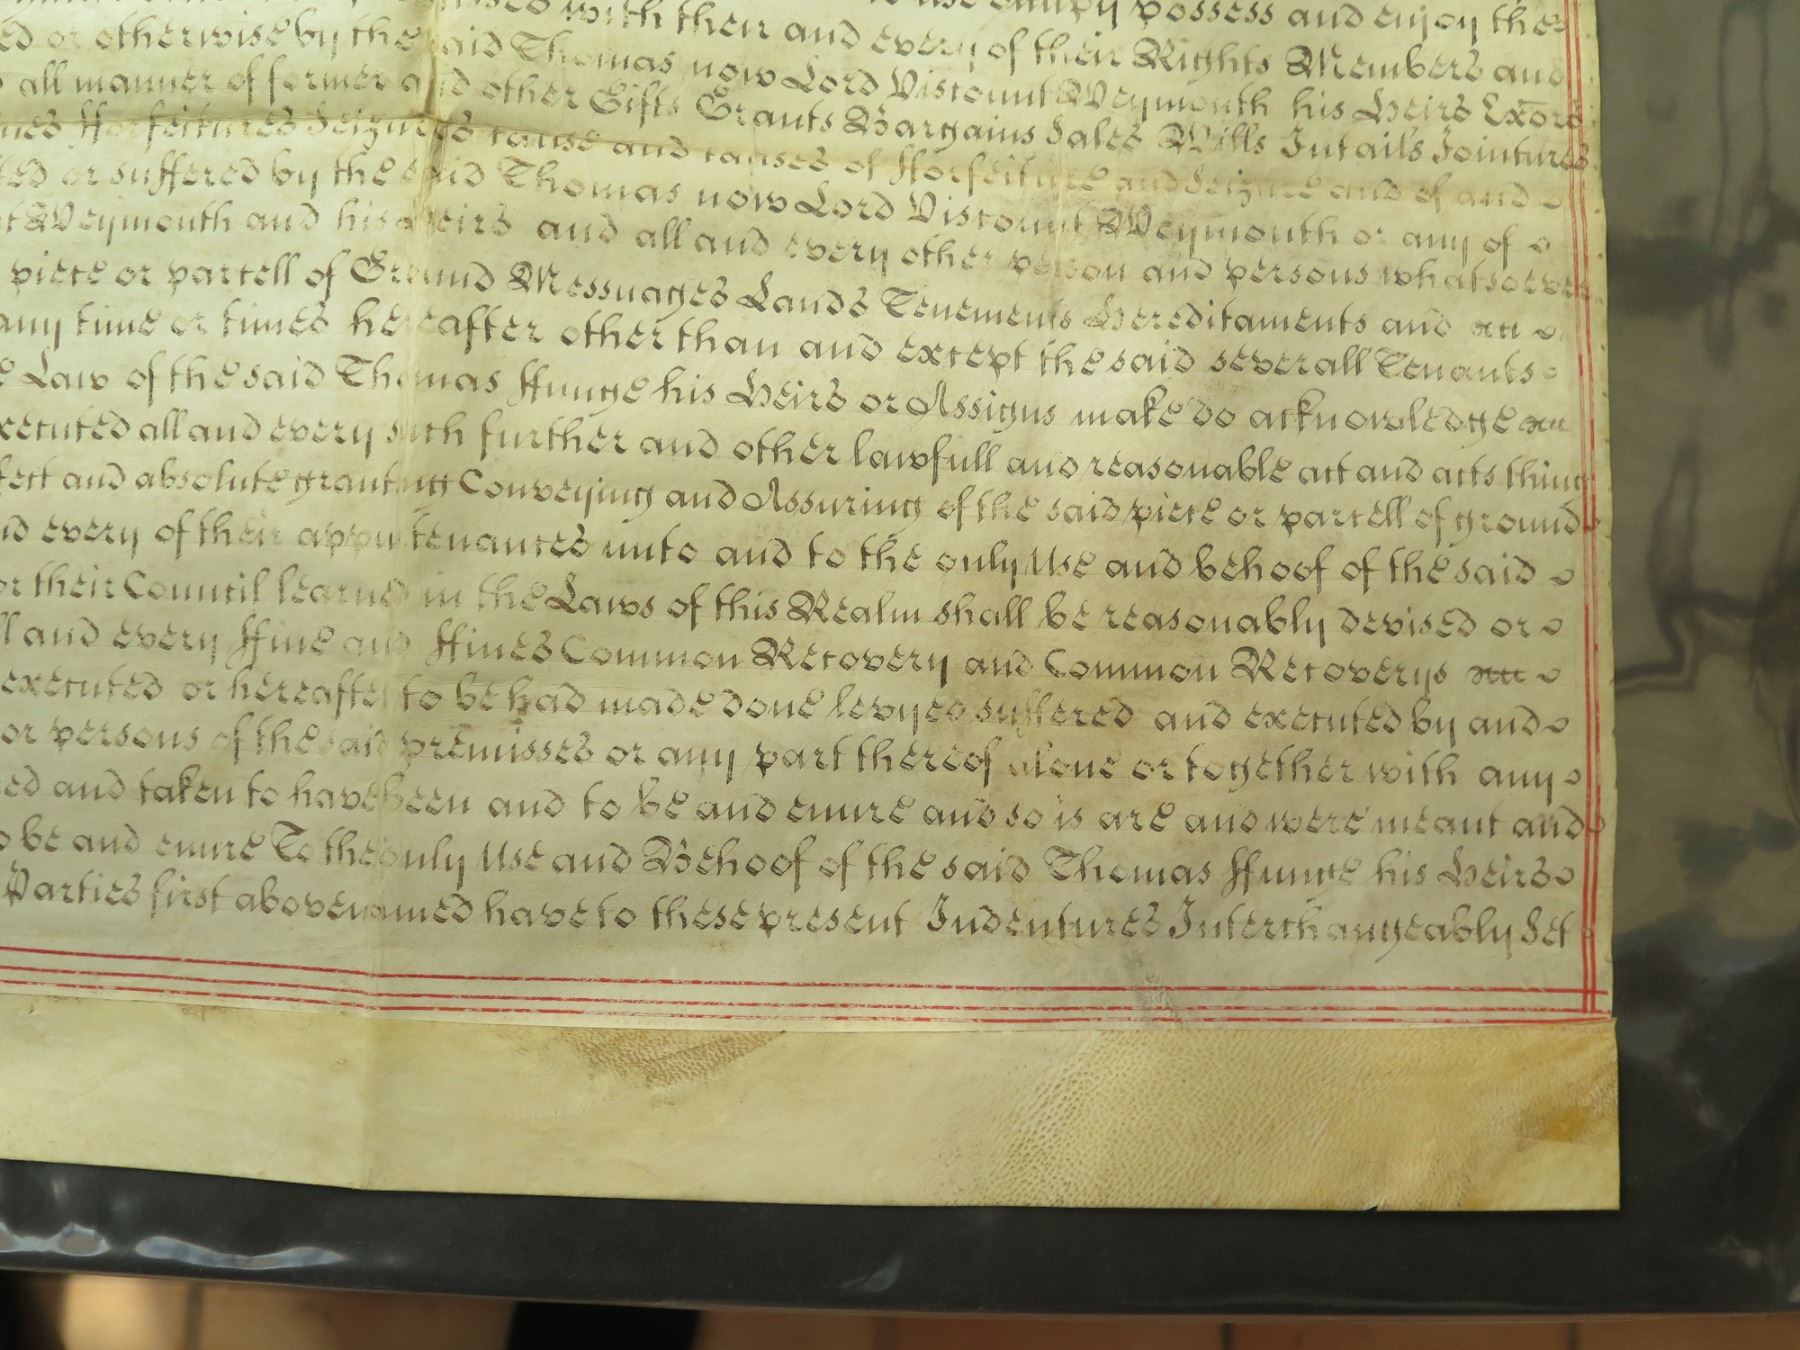 with their and every of their Rights Members and
ed or otherwise by the said Thomas now Lord Viscount Weymouth his Heirs Exors
all manner of former and other Gifts Grants Bargains Sales Wills Intails Jointures
fforfeitures Seizures cause and causes of fforfeiture and Seizure and of and
ted or suffered by the said Thomas now Lord Viscount Weymouth or any of
t Weymouth and his Heirs and all and every other person and persons whatsoever
piece or parcell of Ground Messuages Lands Tenements Hereditaments and all
any time or times hereafter other than and except the said severall Tenants
e Law of the said Thomas ffunge his Heirs or Assigns make do acknowledge
xecuted all and every such further and other lawfull and reasonable act and acts thing
fect and absolute granting Conveying and Assuring of the said piece or parcell of ground
nd every of their appurtenances unto and to the only Use and behoof of the said
or their Council learned in the Laws of this Realm shall be reasonably devised or
ll and every ffine and ffines Common Recovery and Common Recoverys all
executed or hereafter to be had made done levyed suffered and executed by and
or persons of the said premisses or any part thereof alone or together with any
ed and taken to have been and to be and enure and so is are and were meant and
o be and enure To the only Use and Behoof of the said Thomas ffunge his Heirs
Parties first abovenamed have to these present Indentures Interchangeably Set